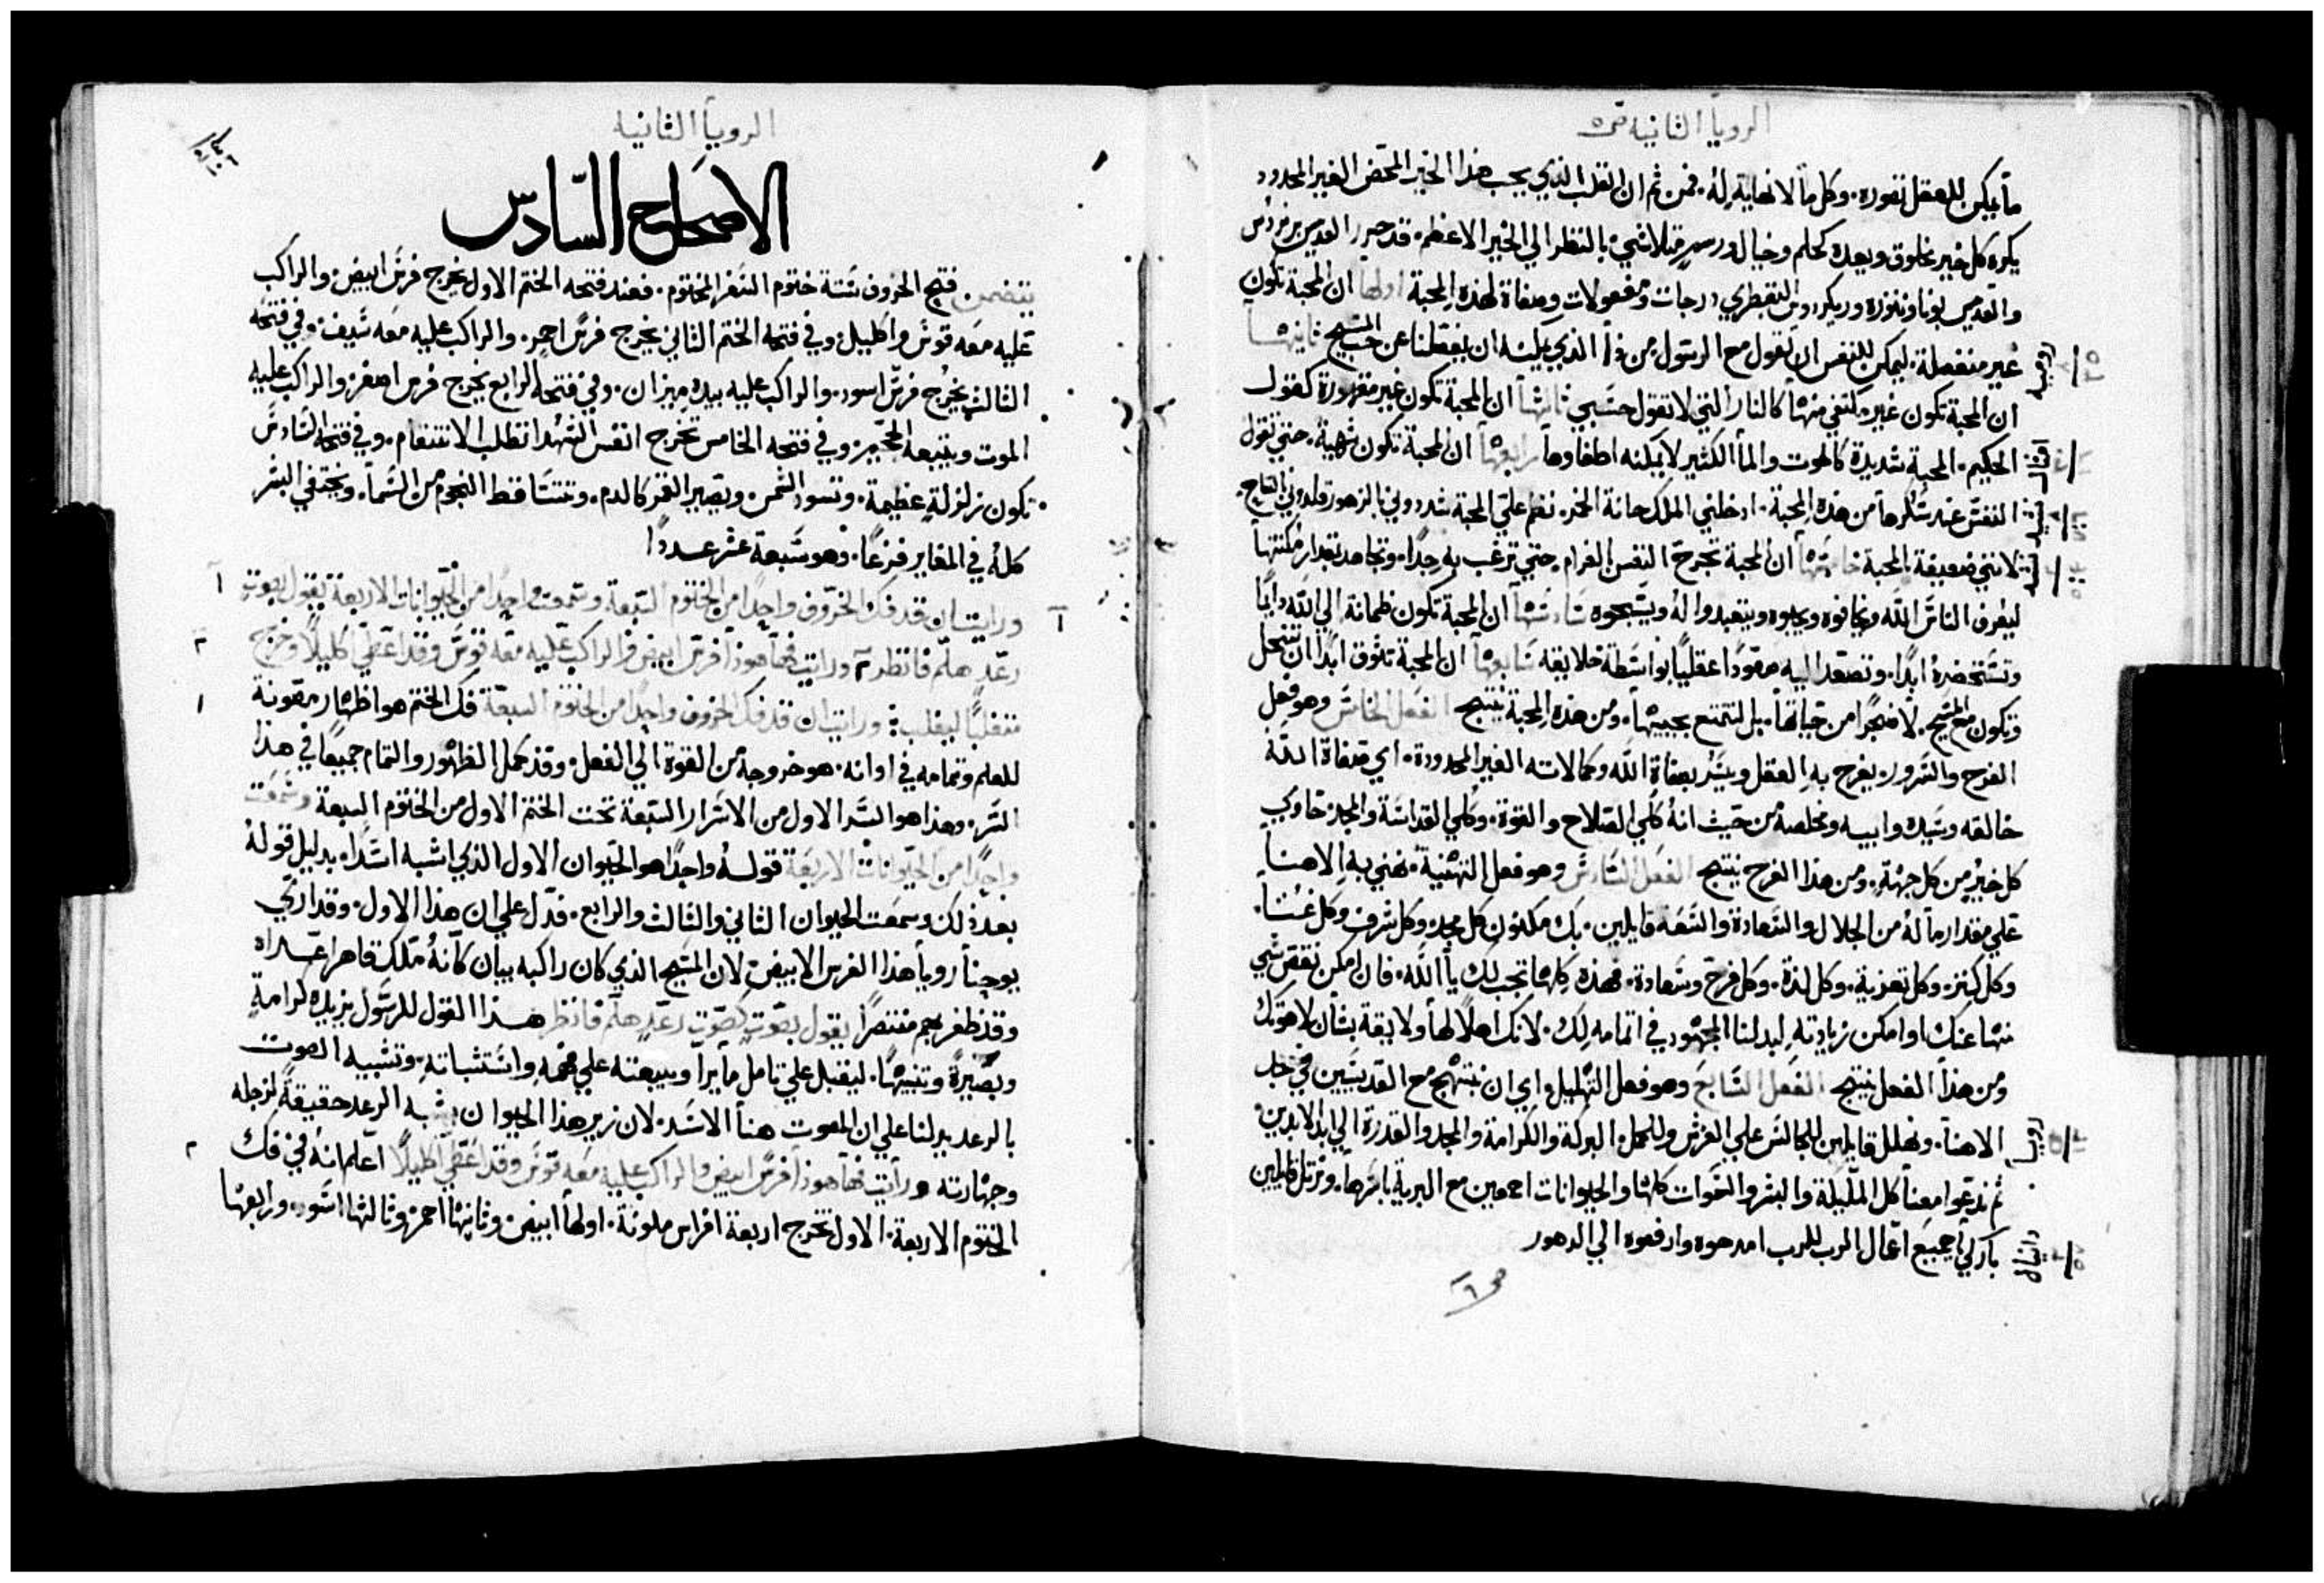 الرويا الثانيه ص٥
ما يمكن للعقل تصوره. وكل ما لا نهاية له. فمن ثم ان القلب الذي يحب هذا الخير المحض الغير المحدود
يكره كل خير مخلوق ويعده كحلم وخيال بالنظر الي الخير الاعظم. قد حرر القديس
والقديس بوناونتوره درجات ومفعولات وصفاة لهذه المحبة اولها ان المحبة تكون
غير منفصلة. ليمكن للنفس ان تقول مع الرسول من ذا الذي يمكنه ان يفصلنا عن حب المسيح ثانيها
ان المحبة تكون غير مكتفي منها كالنار التي لا تقول حسبي ثالثها ان المحبة تكون غير مقهورة كقول
الحكيم. المحبة شديدة كالموت والما الكثير لا يمكنه اطفاوها رابعها ان المحبة تكون شهية. حتي تقول
النفس عند سكرها من هذه المحبة. ادخلني الملك حانة الخمر. نظم علي المحبة شددوني بالزهور
لانني ضعيفة المحبة خامسها ان المحبة تجرح النفس الغرام حتي ترغب به جدا. وتجاهد بقدار مكنتها
ليعرف الناس الله ويخافوه ويحبوه ويتعبدوا له ويسبحوه سادسها ان المحبة تكون ظمانة الي الله دايما
وتستحضره ابدا. وتصعد اليه صعودا عقليا بواسطة خلايقه سابعها ان المحبة تشوق ابدا ان تنحل
وتكون مع المسيح. لا ضجرا من حياتها. بل لتتمتع بحبيبها. ومن هذه المحبة ينتج الفعل الخامس وهو فعل
الفرح والسرور. يفرح به العقل ويسر بصفاة الله وكمالاته الغير المحدودة. اي صفاة الله
خالقه وسيده وابيه ومخلصه من حيث انه كلي الصلاح والقوة. وكلي القداسة والمجد حاوي
كل خير من كل جهة. ومن هذا الفرح ينتج الفعل السادس وهو فعل التهنية. نهني به الاهنا
علي مقدار ما له من الجلال والسعادة والسعه قايلين. بك مكنون كل مجد وكل شرف وكل غنا.
وكل كنز. وكل تعزية. وكل لذة. وكل فرح وسعادة. فهذه كلها تجب لك يا الله. فان امكن نقص شي
منها عنك او امكن زيادته لبدلنا المجهود في اتمامه لك. لانك اهلا لها ولايقة بشان لاهوتك
ومن هذا الفعل ينتج الفعل السابع وهو فعل التهليل. اي ان نبتهج مع القديسين في حب
الاهنا. ونهلل قايلين للجالس علي العرش وللحمل البركة والكرامة والمجد والقدرة الي ابد الابدين
ثم ندعوا معنا كل الملايكة والبشر والسموات كلها والحيوانات اجمعين مع البرية باسرها. ونرتل قايلين
باركي يا جميع اعمال الرب للرب امدحوه وارفعوه الي الدهور
ص٦
رومية
دانيال
الرويا الثانيه
الاصحاح السادس
يتضمن فتح الخروف ستة ختوم السفر المختوم. فعند فتحه الختم الاول يخرج فرس ابيض والراكب
عليه معه قوس واكليل. وفي فتحه الختم الثاني يخرج فرس احمر. والراكب عليه معه سيف. وفي فتحه
الثالث يخرج فرس اسود. والراكب عليه بيده ميزان. وفي فتحه الرابع يخرج فرس اصفر. والراكب عليه
الموت ويتبعه الجحيم. وفي فتحه الخامس تخرج انفس الشهدا تطلب الانتقام. وفي فتحه السادس
تكون زلزلة عظيمة. وتسود الشمس. ويصير القمر كالدم. وتتساقط النجوم من السما. ويختفي البشر
كله في المغاير فزعا. وهو سبعة عشر عددا
١ ورايت ان قد فك الخروف واحدا من الختوم السبعة. وسمعت واحدا من الحيوانات الاربعة يقول بصوت ١
رعد هلم فانظر ٢ ورايت فها هوذا فرس ابيض والراكب عليه معه قوس وقد اعطي اكليلا وخرج ٢
متغلبا ليغلب: ورايت ان قد فك الخروف واحدا من الختوم السبعة فك الختم هو اظهار مصونة ١
للعلم وتمامه في اوانه. هو خروجه من القوة الي الفعل. وقد كمل الظهور والتمام جميعا في هذا
السر. وهذا هو السر الاول من الاسرار السبعة تحت الختم الاول من الختوم السبعة وسمعت
واحدا من الحيوانات الاربعة قوله واحدا هو الحيوان الاول الذي اشبه اسدا. بدليل قوله
بعد ذلك وسمعت الحيوان الثاني والثالث والرابع. فدل علي ان هذا الاول. وقد اري
يوحنا رويا هذا الفرس الابيض لان المسيح الذي كان راكبه ببيان كانه ملك قاهر اعداه
وقد ظفر بهم منتصرا يقول بصوت كصوت رعد هلم فانظر هذا القول للرسول يزيده كرامة
وبصيرة وتنبيها. ليقبل علي تامل ما يرا ويبعثه علي فهمه واستثباته. وتشبيه الصوت
بالرعد يدلنا علي ان الصوت هنا الاسد. لان زير هذا الحيوان يشبه الرعد حقيقة لزجله
وجهارته ورايت فها هوذا فرس ابيض والراكب عليه معه قوس وقد اعطي اكليلا اعلم انه في فك ٢
الختوم الاربعة. الاول تخرج اربعة افراس ملونة. اولها ابيض. وثانيها احمر. وثالثها اسود. ورابعها